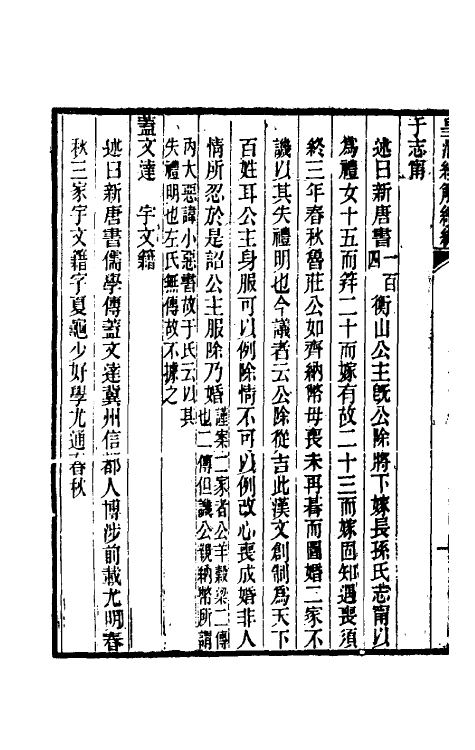 于志甯
述曰新唐書一百四衡山公主旣公除將下嫁長孫氏志甯以
爲禮女十五而笄二十而嫁有故二十三而嫁固知遇喪須
終三年春秋魯莊公如齊納幣母喪未再朞而圖婚二家不
譏以其失禮明也今議者云公除從吉此漢文創制爲天下
百姓耳公主身服可以例除情不可以例改心喪成婚非人
情所忍於是詔公主服除乃婚謹案二家者公羊穀梁二傳
也二傳但譏公親納幣所謂
內大惡諱小惡書故于氏云以其
失禮明也左氏無傳故不據之
蓋文達 宇文籍
述曰新唐書儒學傳蓋文達冀州信都人博涉前載尤明春
秋三家宇文籍字夏龜少好學尤通春秋